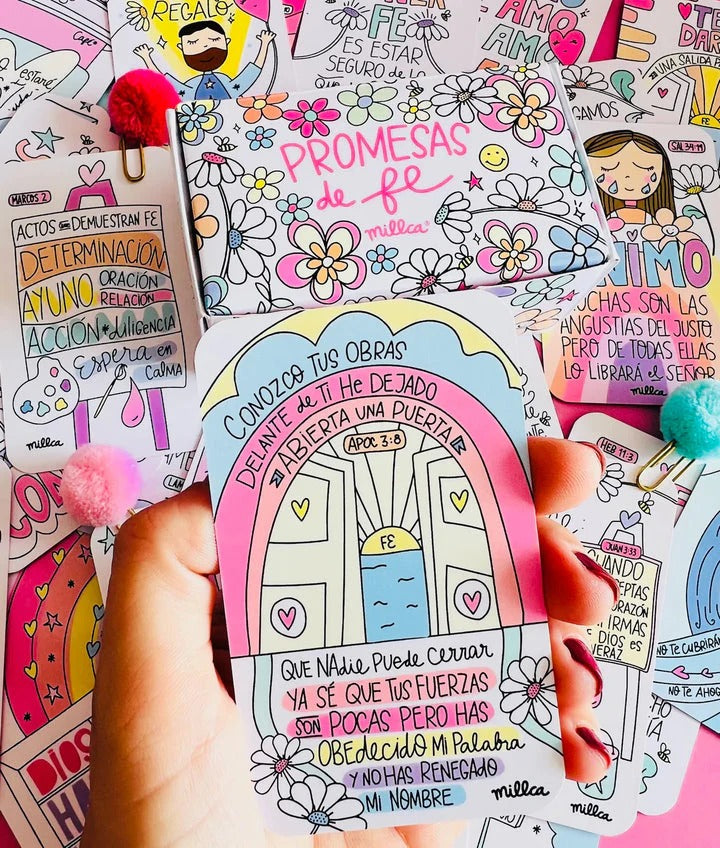 REGALO
FE
ES ESTAR
SEGURO de lo
AMO
AMO
TE
DAR
UNA SALIDA
CAFÉ
PROMESAS
de fe
millca
MARCOS 2
ACTOS que DEMUESTRAN FE
DETERMINACIÓN
AYUNO ORACIÓN
RELACIÓN
ACCIÓN * diLIGENCIA
Espera en
CALMA
millca
SAL 34:19
ÁNIMO
MUCHAS SON LAS
ANGUSTIAS DEL JUSTO,
PERO DE TODAS ELLAS
LO LIBRARÁ el SEÑOR
millca
CONOZCO TUS OBRAS
DELANTE de TI He DEJADO
ABIERTA UNA PUERTA
APOC 3:8
FE
QUE NAdie Puede Cerrar
YA SÉ QUE TUS FUERZAS
SON POCAS PERO HAS
OBEdecido Mi Palabra
Y NO HAS RENEGADO
MI NOMBRE
millca
HEB 11:3
JUAN 3:33
CUANDO
millca
NO TE CUBRIRÁ
NO TE AHOG
DIOS
HA